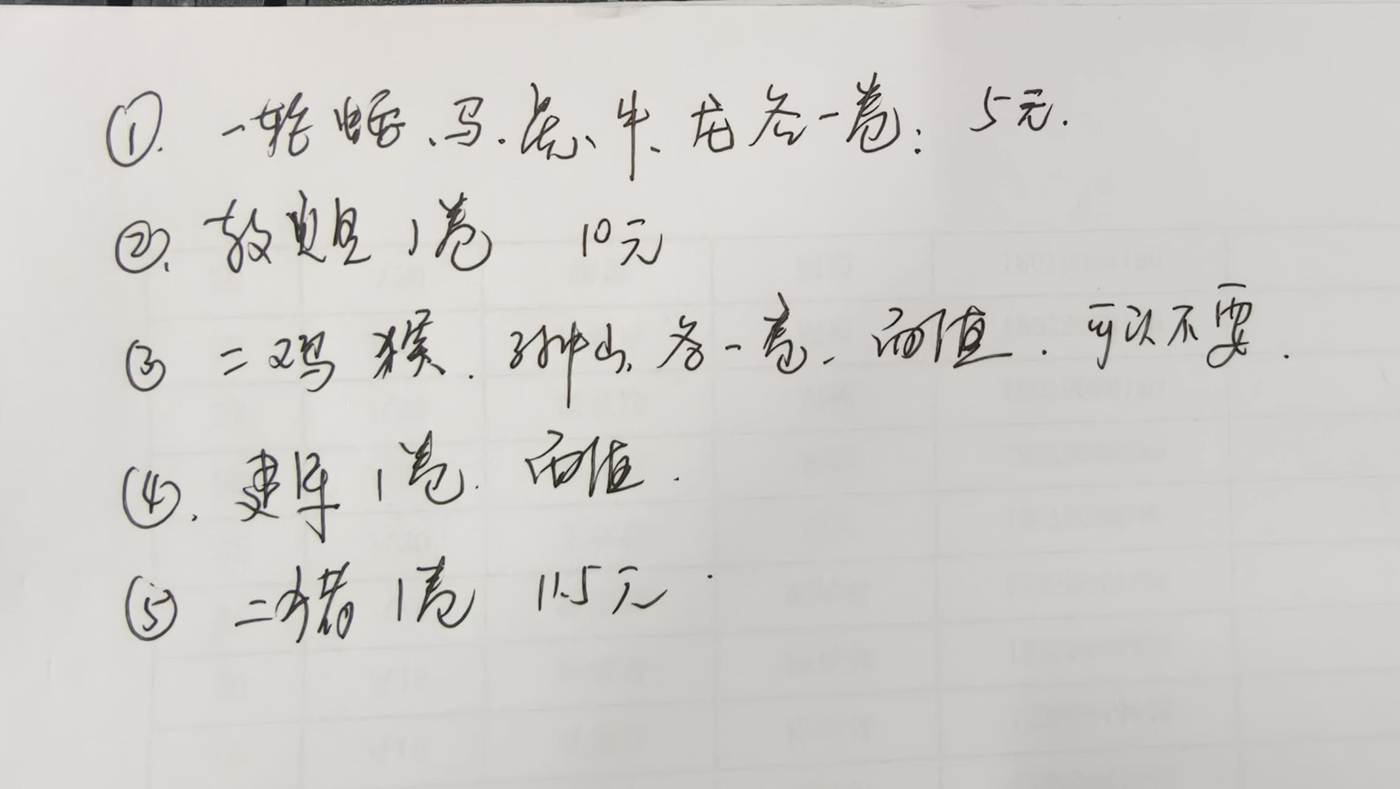 ①. 一轮蛇、马、虎、牛、龙各一卷: 5元.
②. 敦煌 1卷 10元
③ 二鸡 猴. 孙中山. 各一卷. 面值. 可以不要.
④. 建军 1卷. 面值.
⑤ 二猪 1卷 11.5元.